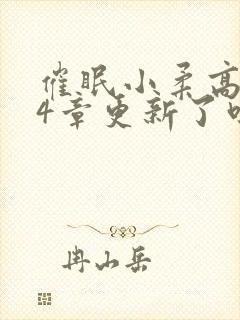 催眠小柔高
4章更新了
冉山岳